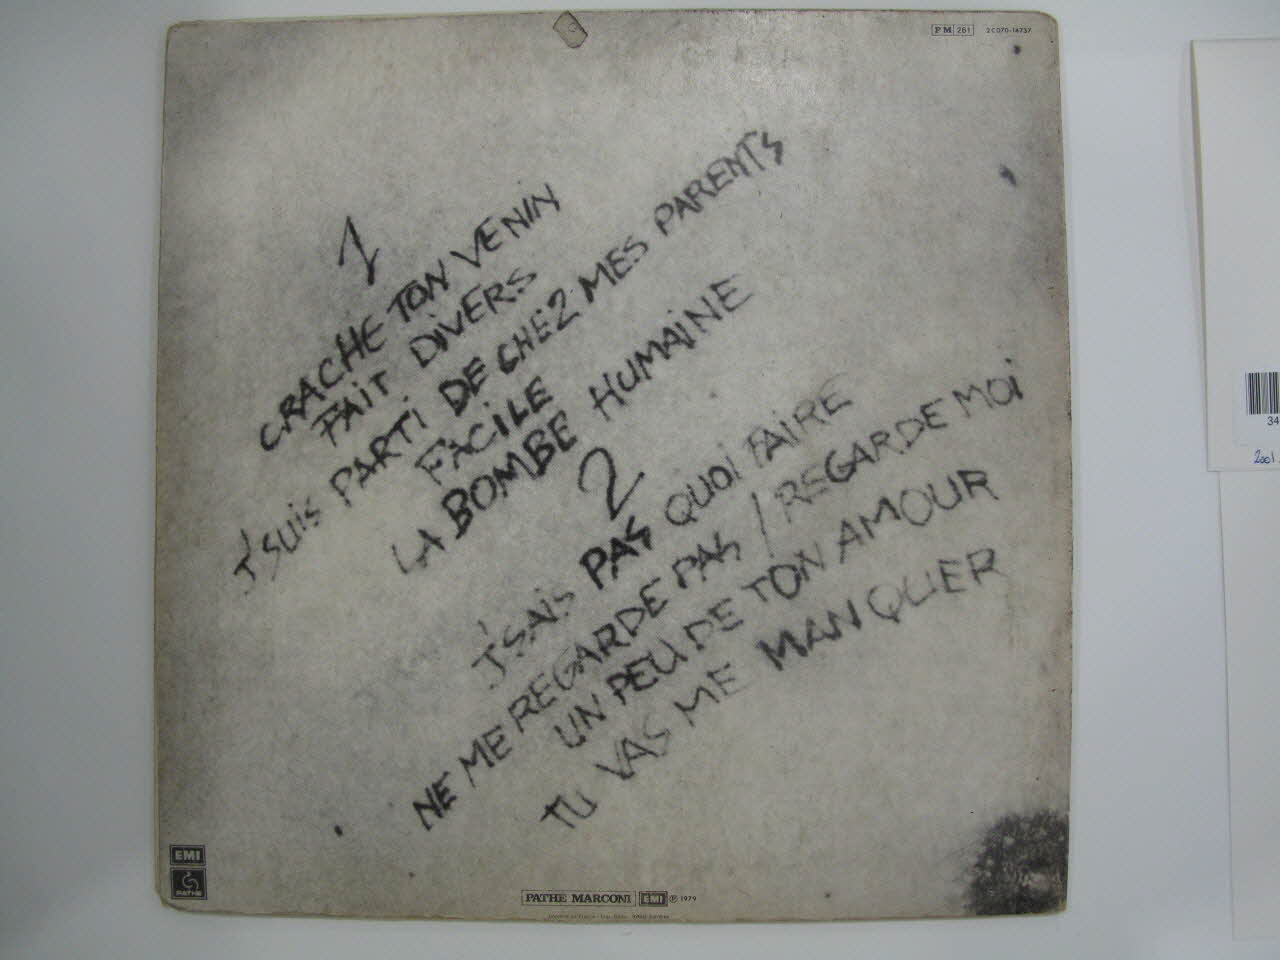 PM 261 2C070-14737
1
CRACHE TON VENIN
FAIT DIVERS
J'SUIS PARTI DE CHEZ MES PARENTS
FACILE
LA BOMBE HUMAINE
2
J'SAIS PAS QUOI FAIRE
NE ME REGARDE PAS / REGARDE MOI
UN PEU DE TON AMOUR
TU VAS ME MANQUER
EMI
PATHE
PATHE MARCONI EMI ℗ 1979
34
2001